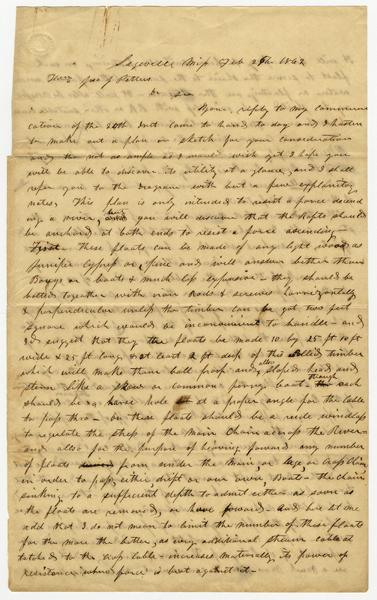 Legeville Miss Feb 27th 1862
Honr Jno J Pettus
Dr Sir
Your reply to my communi
cation of the 20th Inst came to hand to day and I hasten
to make out a plan or sketch for your consideration
and tho not as ample as I would wish yet I hope you
will be able to discover its utility at a glance, and I shall
refer you to the diagram with but a few explanatory
notes, This plan is only intended to resist a force descend
ing a river, and you will discover that the Rafts should
be anchored at both ends to resist a force ascending—
First — these floats can be made of any light wood as
Juniper cypress or pine and will answer better than
Bouys or boats & much less expensive — they should be
bolted together with iron Rods & screws horizontally
& perpendicular unless the timber can be got two feet
square which would be inconvenient to handle — and
I suggest that they the floats be made 10 by 25 ft 10 ft
wide & 25 ft long & at least 2 ft deep of the solid timber
which will make them ball proof and also sloped head and
stern like a skow or common ferry boat — through each
should be a hawse hole at a proper angle for the cable
to pass thro — on these floats should be a rude windlass
to regulate the stress of the Main Chain across the River —
and also for the purpose of heaving forward any number
of floats from under the main, or large, or Cross Chain
in order to pass either drift or our own Boats — the chain
sinking to a sufficient depth to admit either as soon as
the floats are removed, or hove forward — and here let me
add that I do not mean to limit the number of these floats
for the more the better, as every additional stream cable at
tatched to the cross cable — increases materially its power of
resistance when force is brot against it —